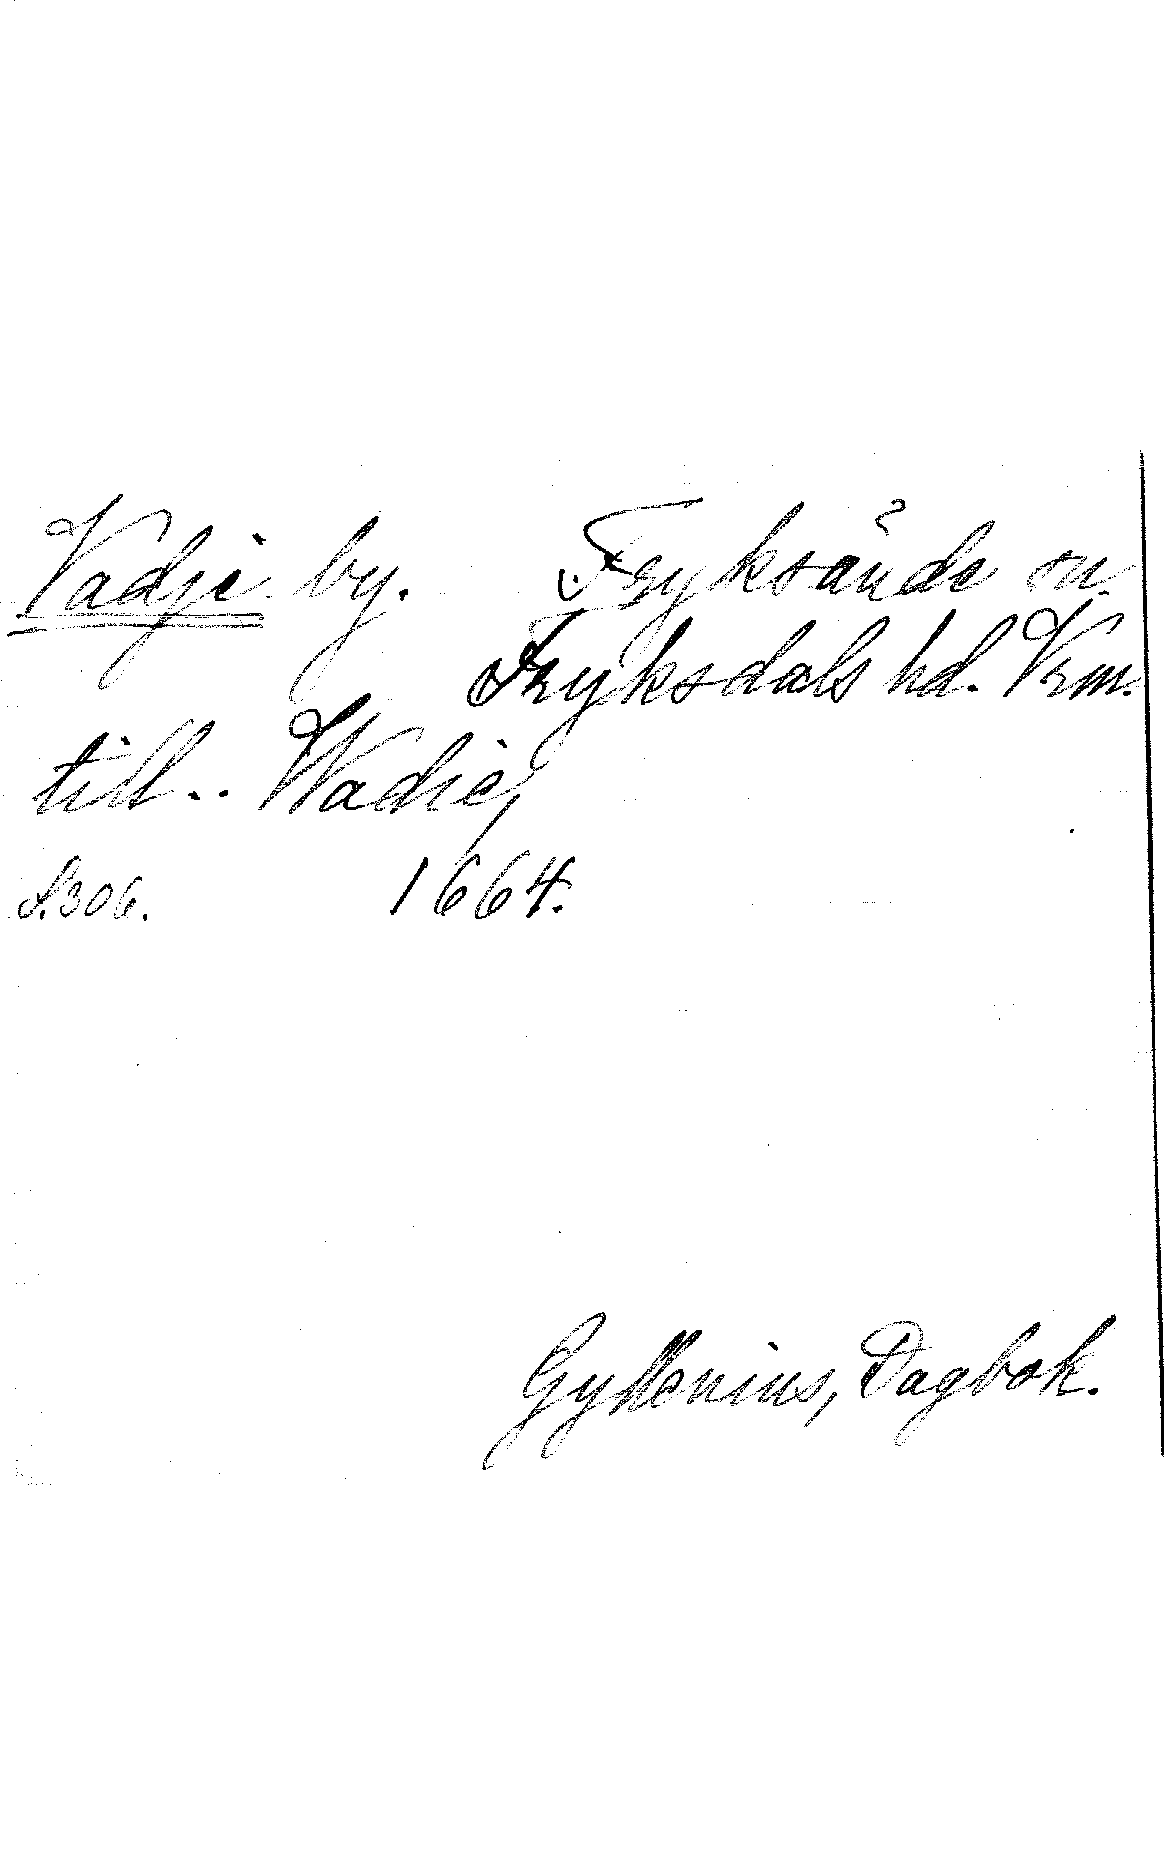 Vadje by. Fryksände sn.
Fryksdals hd. Vrm.
till.. Wadie,
S. 306. 1664.
Gyllenius, Dagbok.